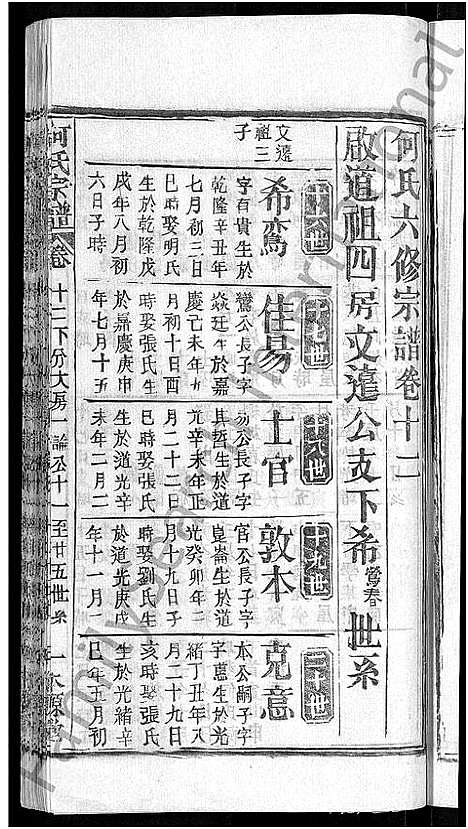 何氏六修宗譜卷十二
啟道祖四房文遠公支下希鸞春世系
十六世
十七世
十八世
十九世
二十世
文遠
祖三
子
希鸞
字百貴生於
乾隆辛丑年
七月初三日
巳時娶明氏
生於乾隆戊
戌年八月初
六日子時
佳易
鸞公長子字
焱廷生於嘉
慶己未年
月初十日酉
時娶張氏生
於嘉慶庚申
年七月十五
士官
易公長子字
其哲生於道
光辛未年正
月二十二日
巳時娶張氏
生於道光辛
未年二月二
敦本
官公長子字
崑崙生於道
光癸卯年二
月十九日子
時娶劉氏生
於道光庚戌
年十一月二
克意
本公嗣子字
字憲生於光
緒丁丑年八
月二十九日
亥時娶張氏
生於光緒辛
巳年五月初
何氏宗譜
卷十二下分大房一諭公十一至廿五世系
一